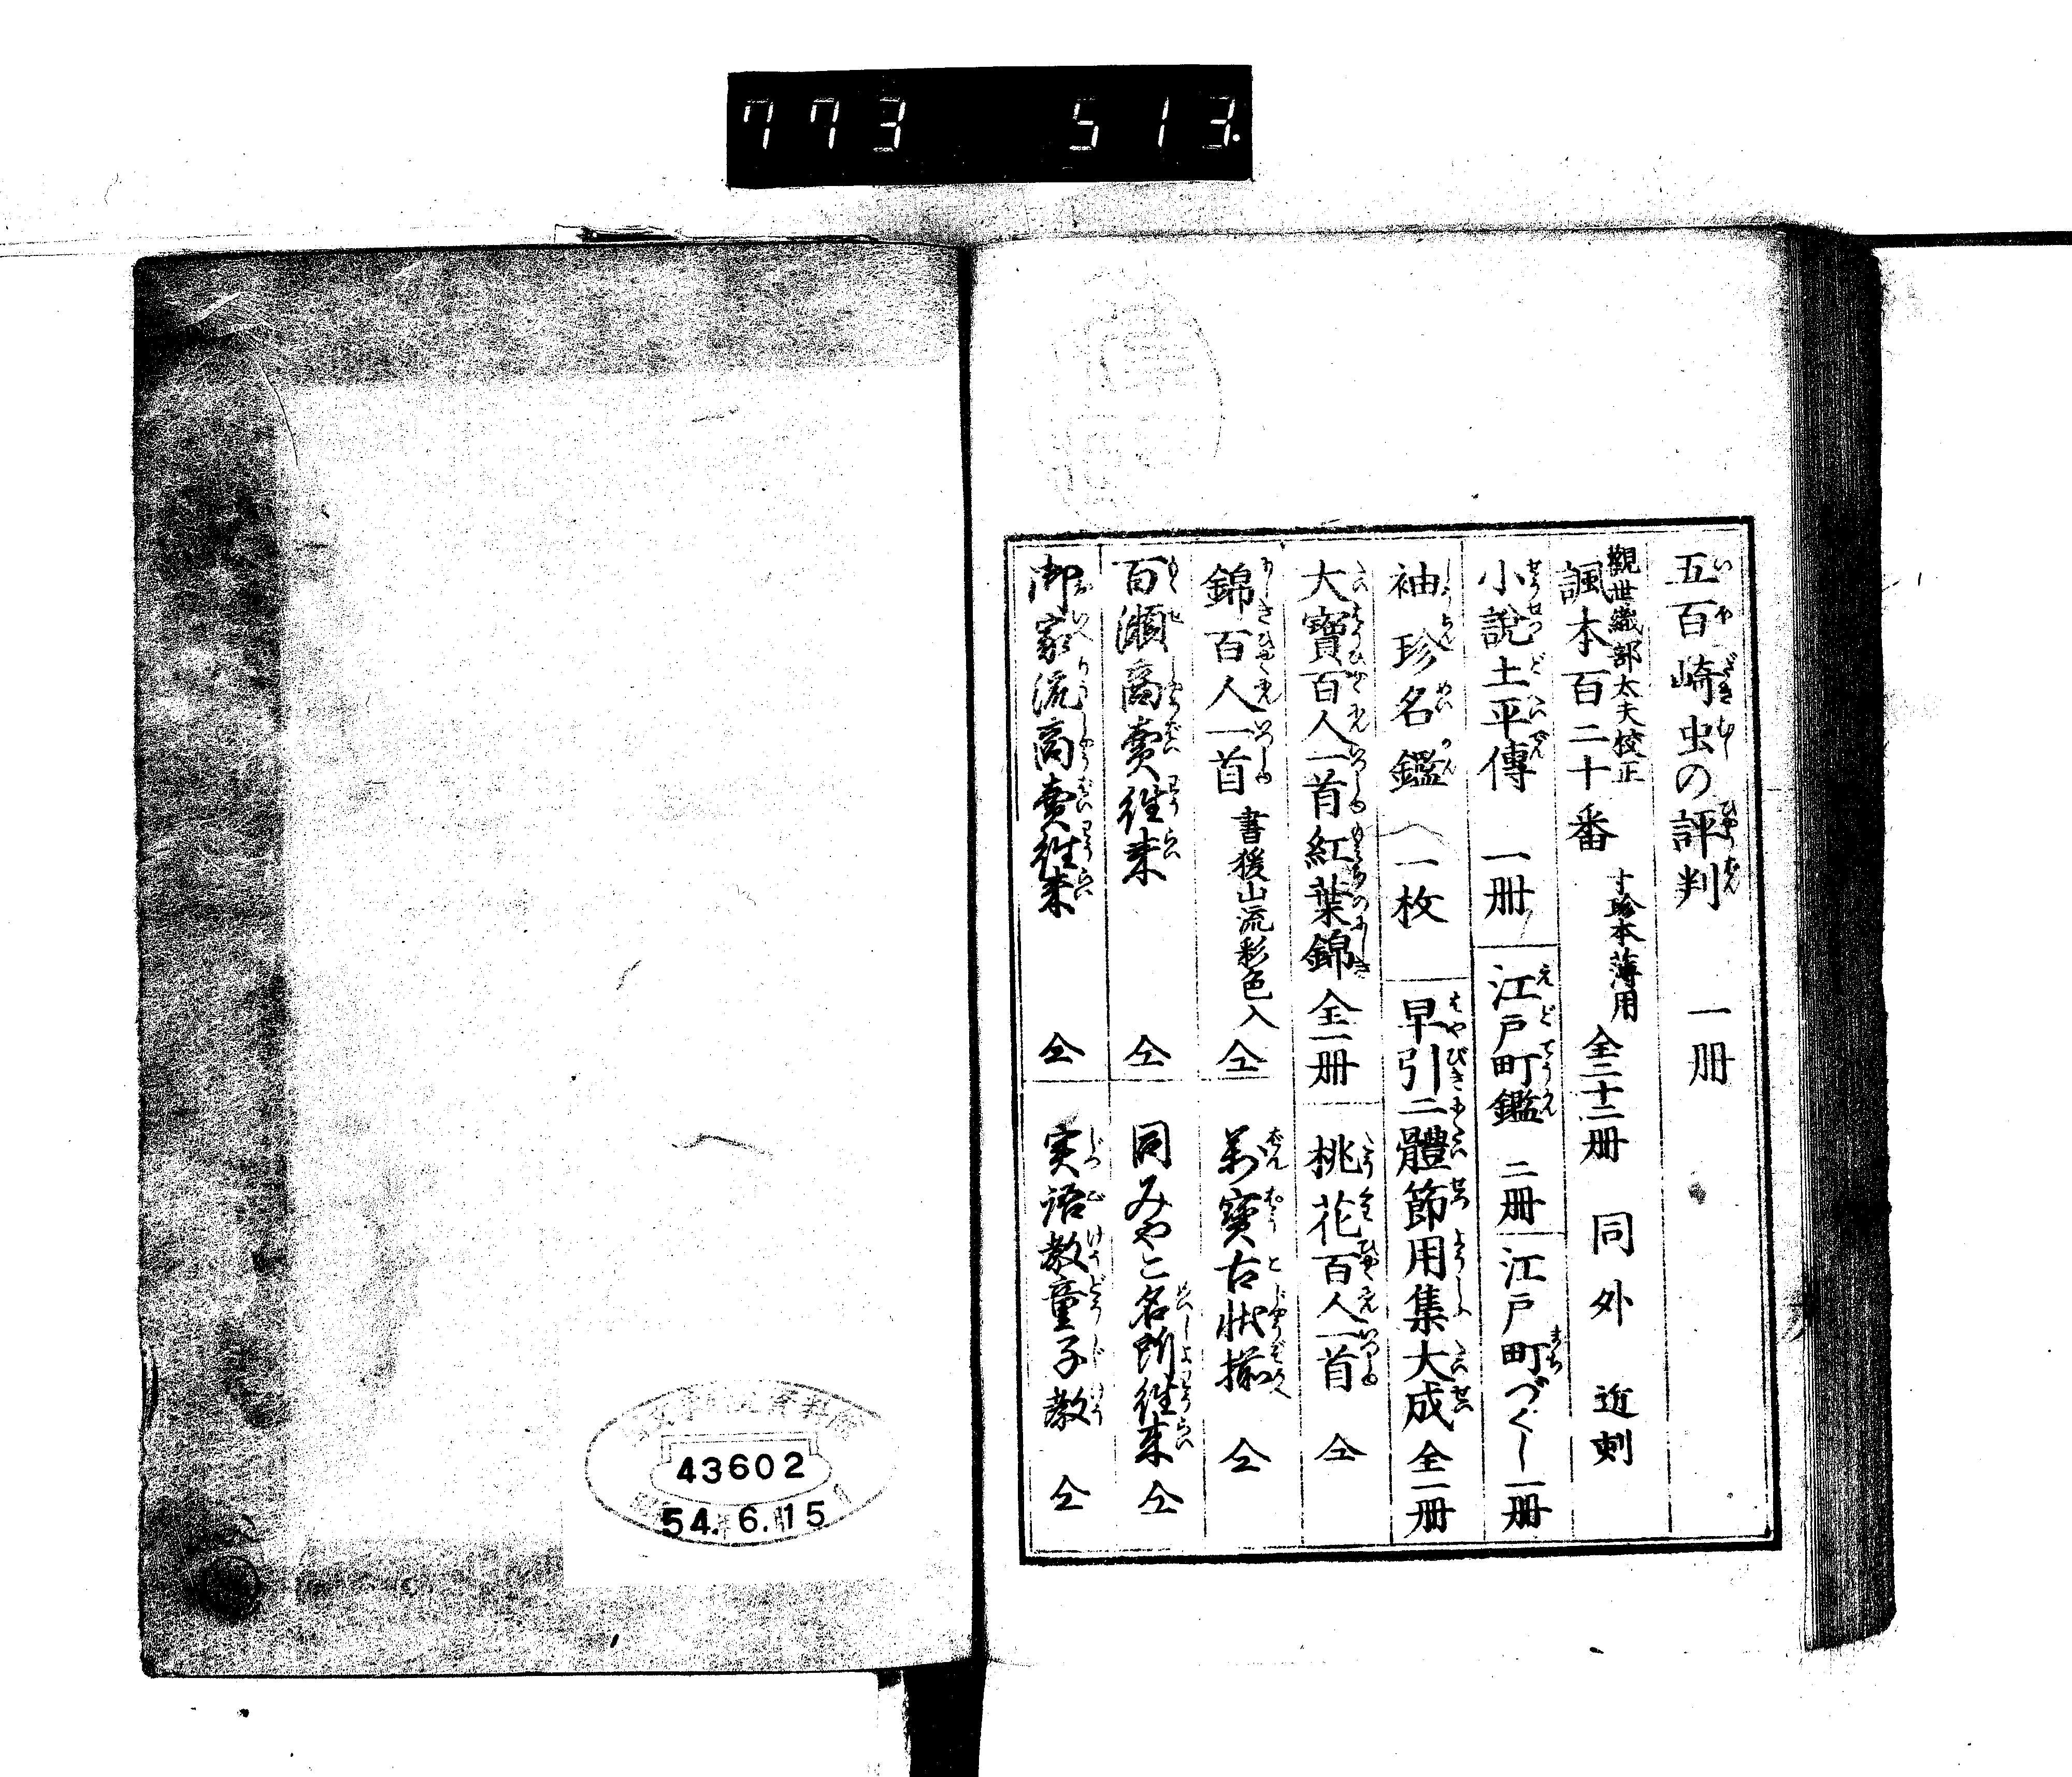 773 513.
五百崎虫の評判 一册
觀世織部太夫校正
諷本百二十番
寸珍本薄用
全二十二册 同外 近刻
小說土平傳 一册
江戸町鑑 二册
江戸町づくし一册
袖珍名鑑 一枚
早引二體節用集大成 全一册
大寶百人一首紅葉錦 全一册
桃花百人一首 仝
錦百人一首 書猨山流彩色入 仝
萬寶古状揃 仝
百瀬商賣徃来 仝
同みやこ名所徃来 仝
御家流商賣徃来 仝
実語教童子教 仝
43602
54.6.15